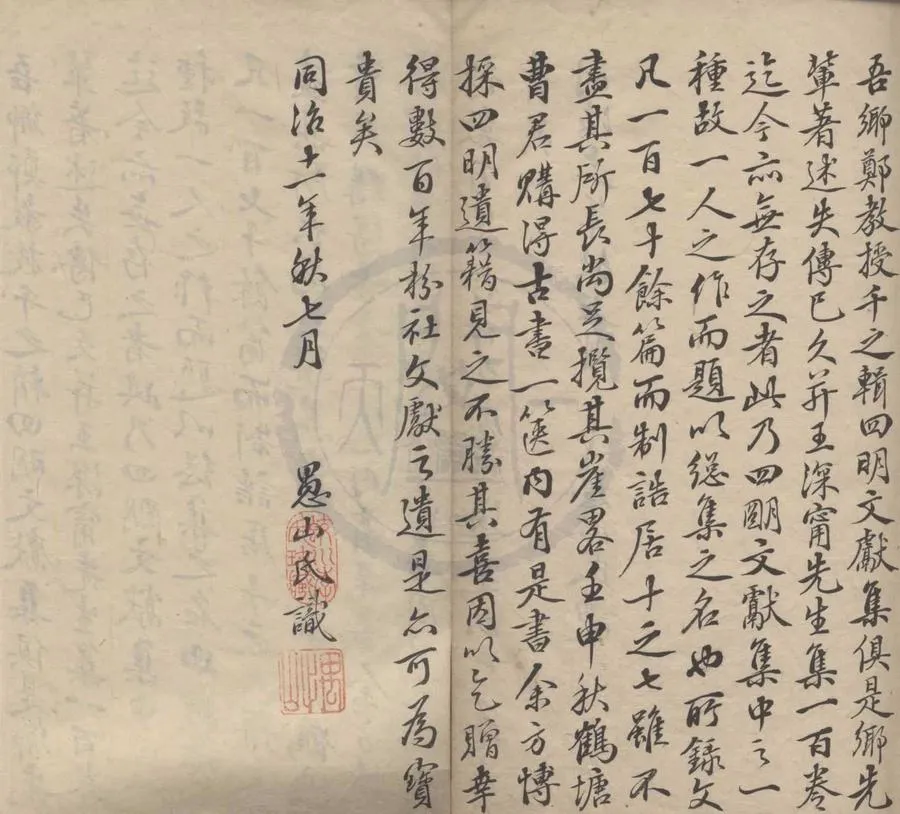 吾鄉鄭教授千之輯四明文獻集俱是鄉先
輩著述失傳已久并王深甯先生集一百卷
迄今亦無存之者此乃四明文獻集中之一
種故一人之作而題以總集之名也所錄文
凡一百七十餘篇而制誥居十之七雖不
盡其所長尚足攬其崖畧壬申秋鶴塘
曹君購得古書一篋內有是書余方博
採四明遺籍見之不勝其喜因以乞贈幸
得數百年枌社文獻之遺是亦可為寶
貴矣
同治十一年秋七月
愚山氏識